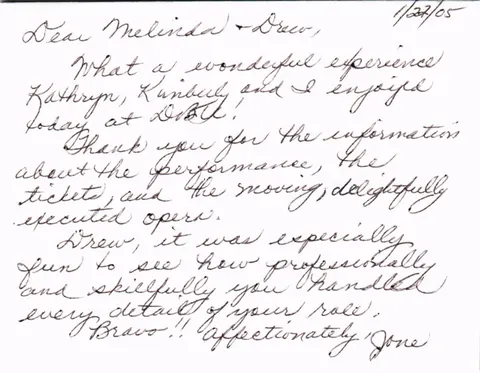 1/27/05
Dear Melinda + Drew,
What a wonderful experience
Kathryn, Kimberly and I enjoyed
today at !
Thank you for the information
about the performance, the
tickets, and the moving, delightfully
executed opera.
Drew, it was especially
fun to see how professionally
and skillfully you handled
every detail of your role.
Bravo!! Affectionately, Jone